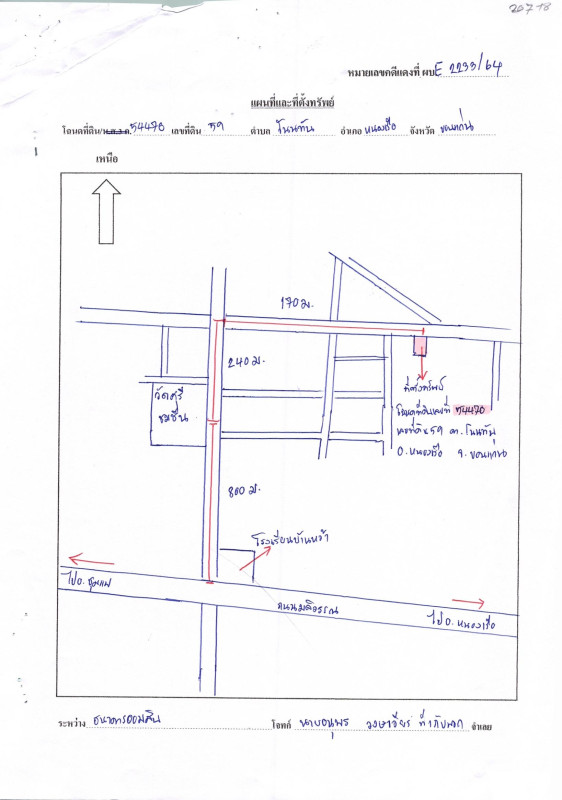 20718
หมายเลขคดีแดงที่ ผบE 2233/64
แผนที่และที่ตั้งทรัพย์
โฉนดที่ดิน/น.ส.3 ก. 54470 เลขที่ดิน 59 ตำบล โนนทัน อำเภอ หนองเรือ จังหวัด ขอนแก่น
เหนือ
170 ม.
240 ม.
วัดศรี
ชมชื่น
ที่ตั้งทรัพย์
โฉนดที่ดินเลขที่ 54470
เลขที่ดิน 59 ต. โนนทัน
อ. หนองเรือ จ. ขอนแก่น
800 ม.
โรงเรียนบ้านหว้า
ไป อ. ชุมแพ
ถนนมลิวรรณ
ไป อ. หนองเรือ
ระหว่าง ธนาคารออมสิน โจทก์ จำเลย